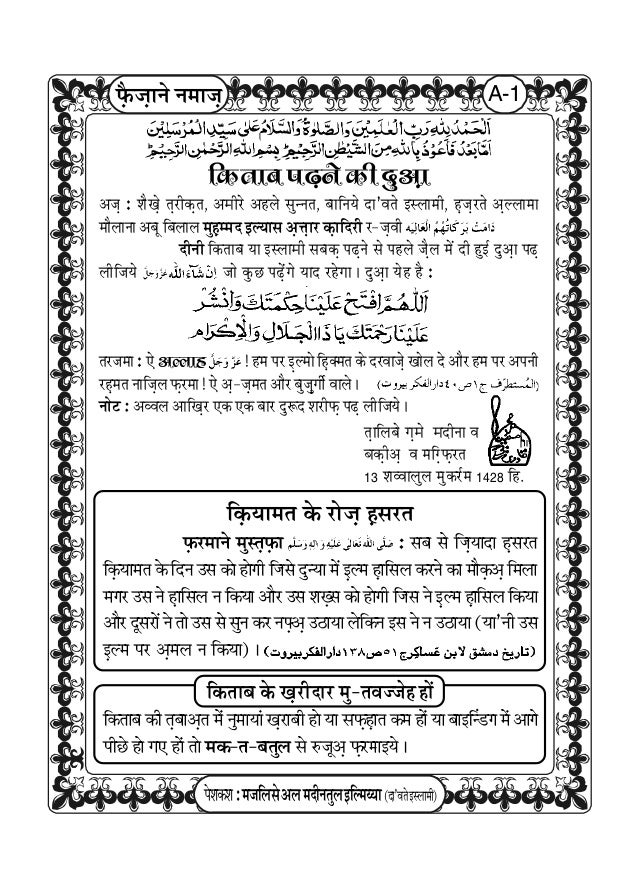 फ़ैज़ाने नमाज़
A-1
اَلْحَمْدُ لِلّٰہِ رَبِّ الْعٰلَمِیْنَ وَالصَّلٰوۃُ وَالسَّلَامُ عَلٰی سَیِّدِ الْمُرْسَلِیْنَ
اَمَّا بَعْدُ فَاَعُوْذُ بِاللّٰہِ مِنَ الشَّیْطٰنِ الرَّجِیْمِ ؕ بِسْمِ اللّٰہِ الرَّحْمٰنِ الرَّحِیْمِ ؕ
किताब पढ़ने की दुआ़
अज़ : शैख़े त़रीक़त, अमीरे अहले सुन्नत, बानिये दा'वते इस्लामी, ह़ज़रते अ़ल्लामा
मौलाना अबू बिलाल मुह़म्मद इल्यास अ़त्त़ार क़ादिरी र-ज़वी دَامَتْ بَرَکَاتُہُمُ الْعَالِیَہ
दीनी किताब या इस्लामी सबक़ पढ़ने से पहले ज़ैल में दी हुई दुआ़ पढ़
लीजिये اِنْ شَآءَ اللّٰہ عَزَّوَجَلَّ जो कुछ पढ़ेंगे याद रहेगा । दुआ़ येह है :
اَللّٰھُمَّ افْتَحْ عَلَیْنَا حِکْمَتَکَ وَانْشُرْ
عَلَیْنَا رَحْمَتَکَ یَا ذَا الْجَلَالِ وَالْاِکْرَام
तरजमा : ऐ अल्लाह عَزَّوَجَلَّ ! हम पर इ़ल्मो ह़िक्मत के दरवाज़े खोल दे और हम पर अपनी
रह़मत नाज़िल फ़रमा ! ऐ अ़-ज़मत और बुज़ुर्गी वाले । (اَلْمُسْتَطْرَف ج۱ص۴۰دارالفکر بیروت)
नोट : अव्वल आख़िर एक एक बार दुरूद शरीफ़ पढ़ लीजिये ।
त़ालिबे ग़मे मदीना व
बक़ीअ़ व मग़्फ़िरत
13 शव्वालुल मुकर्रम 1428 हि.
क़ियामत के रोज़ ह़सरत
फ़रमाने मुस्त़फ़ा صَلَّی اللّٰہُ تَعَالٰی عَلَیْہِ وَاٰلِہٖ وَسَلَّم : सब से ज़ियादा ह़सरत
क़ियामत के दिन उस को होगी जिसे दुन्या में इ़ल्म ह़ासिल करने का मौक़अ़ मिला
मगर उस ने ह़ासिल न किया और उस शख़्स को होगी जिस ने इ़ल्म ह़ासिल किया
और दूसरों ने तो उस से सुन कर नफ़्अ़ उठाया लेकिन इस ने न उठाया (या'नी उस
इ़ल्म पर अ़मल न किया) । (تاریخ دمشق لابن عَساکِرج۵۱ص۱۳۸دارالفکربیروت)
किताब के ख़रीदार मु-तवज्जेह हों
किताब की त़बाअ़त में नुमायां ख़राबी हो या सफ़ह़ात कम हों या बाइन्डिंग में आगे
पीछे हो गए हों तो मक-त-बतुल से रुजूअ़ फ़रमाइये ।
पेशकश : मजलिसे अल मदीनतुल इ़ल्मिय्या (दा'वते इस्लामी)